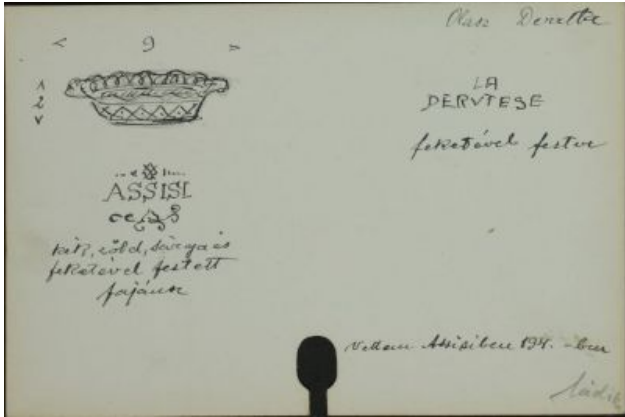 Olasz Deratta
< 9 >
1
2
v
LA
DERVTESE
feketével festve
ASSISI
kék, zöld, sárga és
feketével festett
fajánsz
Vettem Assisiben 194. -ben